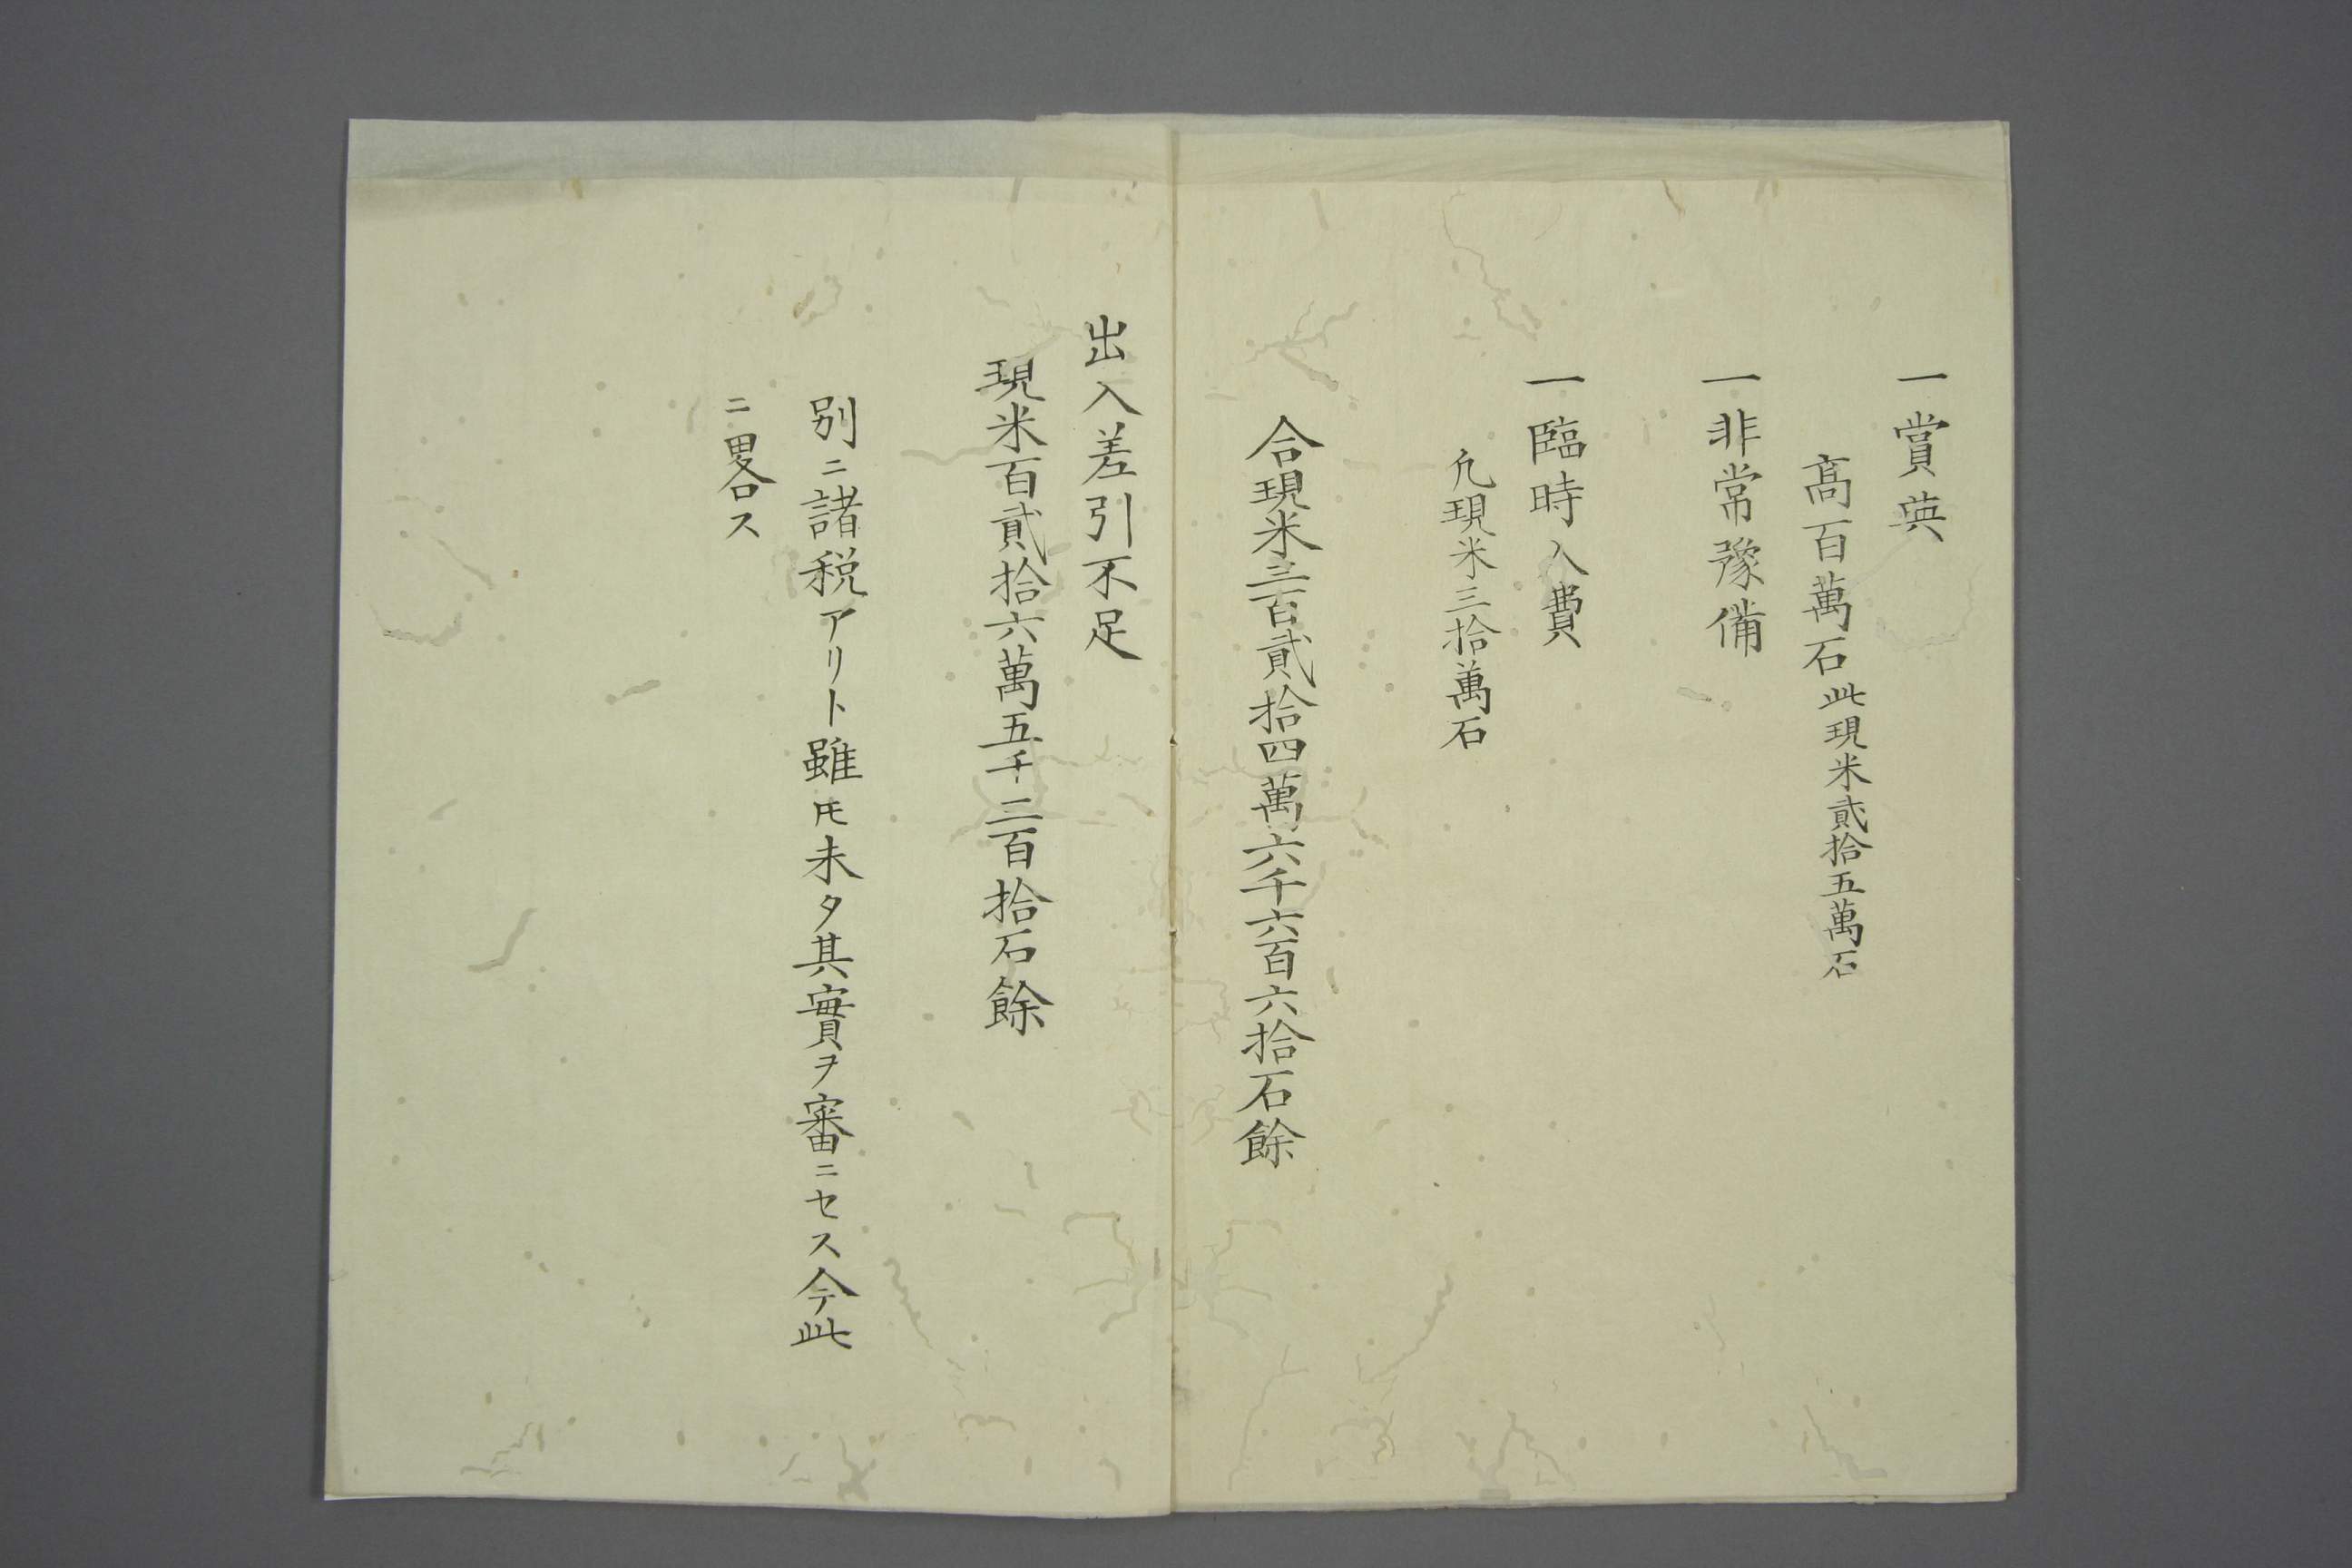 一賞典
髙百萬石此現米貳拾五萬石
一非常豫備
一臨時入費
凢現米三拾萬石
合現米三百貳拾四萬六千六百六拾石餘
出入差引不足
現米百貳拾六萬五千三百拾石餘
別ニ諸税アリト雖𪜈未タ其實ヲ審ニセス今此
ニ畧ス